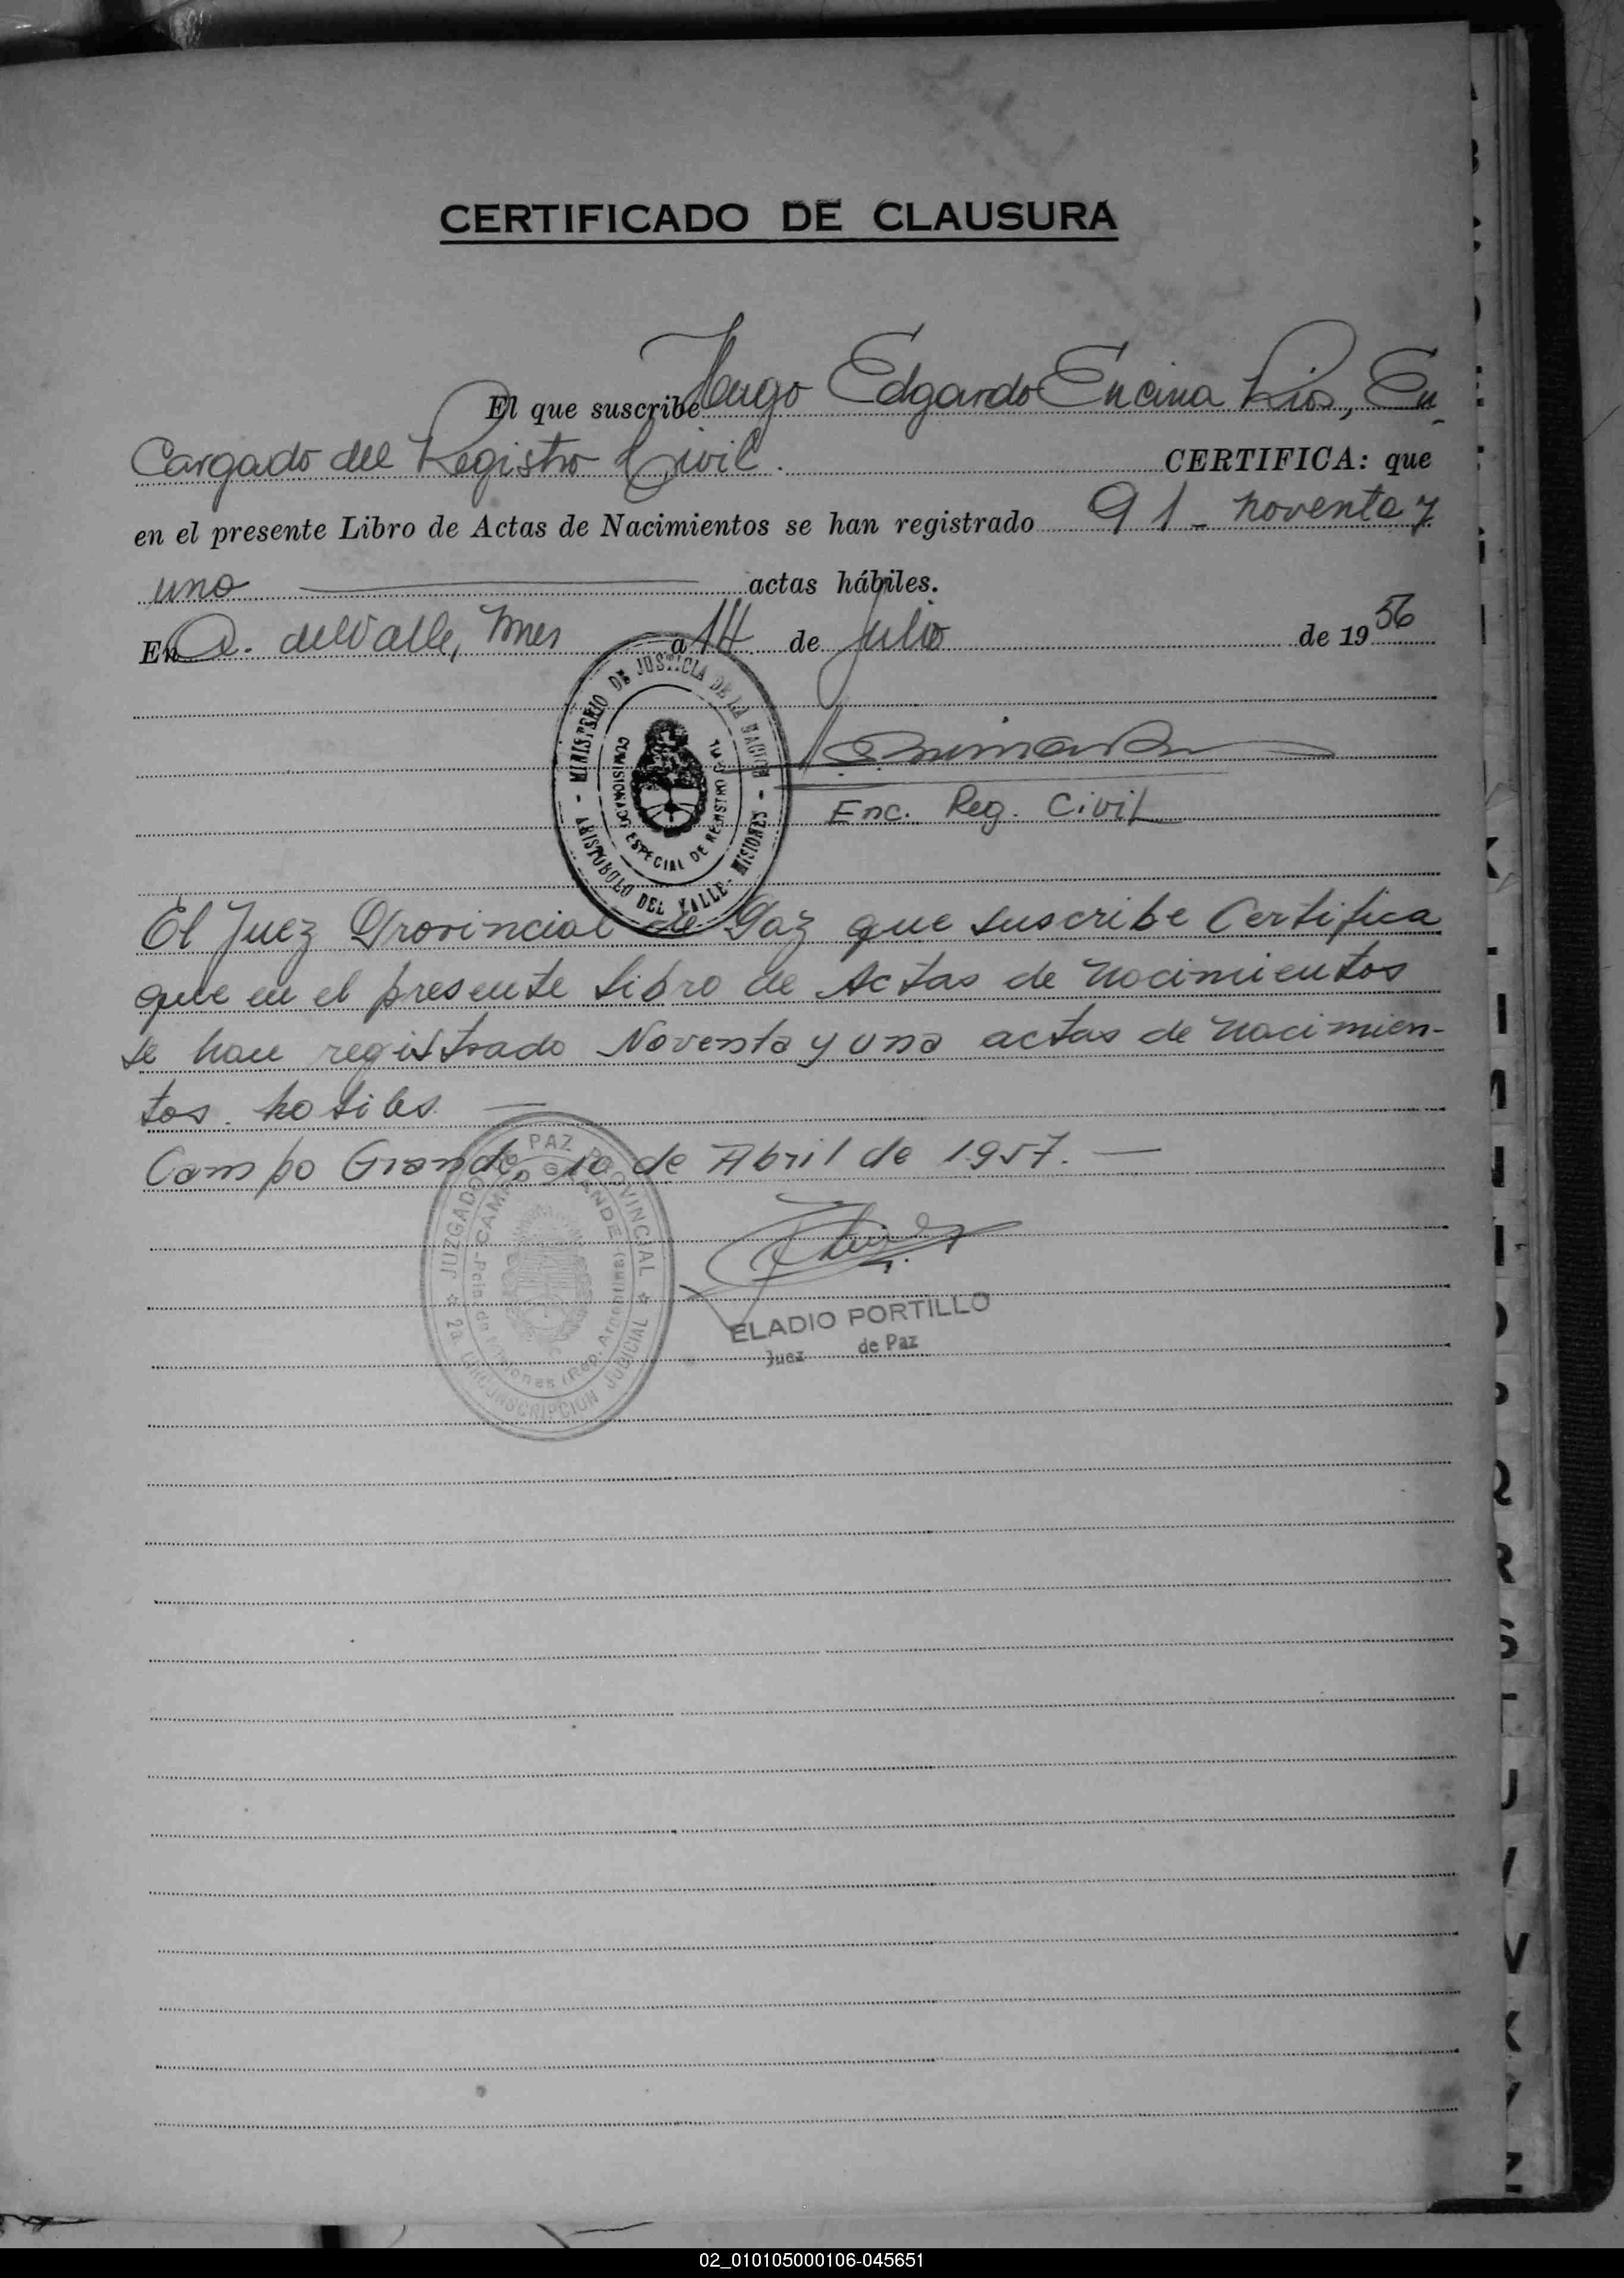 CERTIFICADO DE CLAUSURA
El que suscribe Hugo Edgardo Encina Rios, En-
cargado del Registro Civil. CERTIFICA: que
en el presente Libro de Actas de Nacimientos se han registrado 91 - noventa y
uno actas hábiles.
En A. del Valle, Mnes a 14 de Julio de 1956
MINISTERIO DE JUSTICIA DE LA NACION
COMISIONADO ESPECIAL DE REGISTRO CIVIL
- ARISTOBULO DEL VALLE - MISIONES -
Enc. Reg. Civil
El Juez Provincial de Paz que suscribe Certifica
que en el presente Libro de Actas de Nacimientos
se han registrado Noventa y una actas de nacimien-
tos habiles —
Campo Grande, 10 de Abril de 1957. —
JUZGADO DE PAZ PROVINCIAL
CAMPO GRANDE
-Pcia. de Misiones (Rep. Argentina)-
2a. CIRCUNSCRIPCION JUDICIAL
ELADIO PORTILLO
Juez de Paz
K
L
M
N
O
P
Q
R
S
T
U
V
W
X
Y
Z
02_010105000106-045651